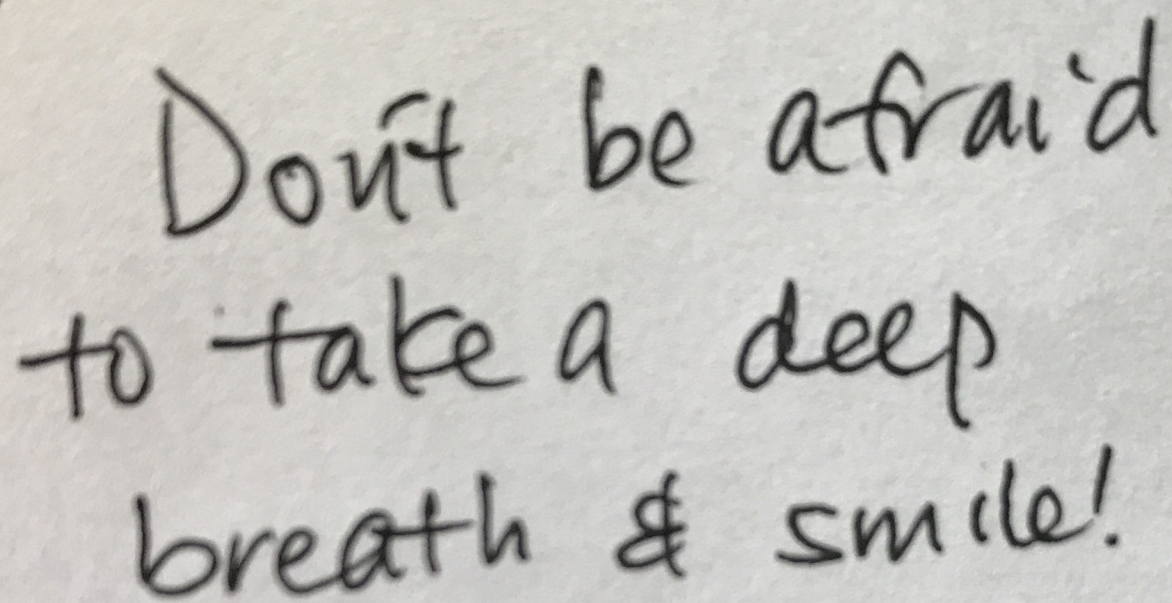 Don't be afraid
to take a deep
breath & smile!